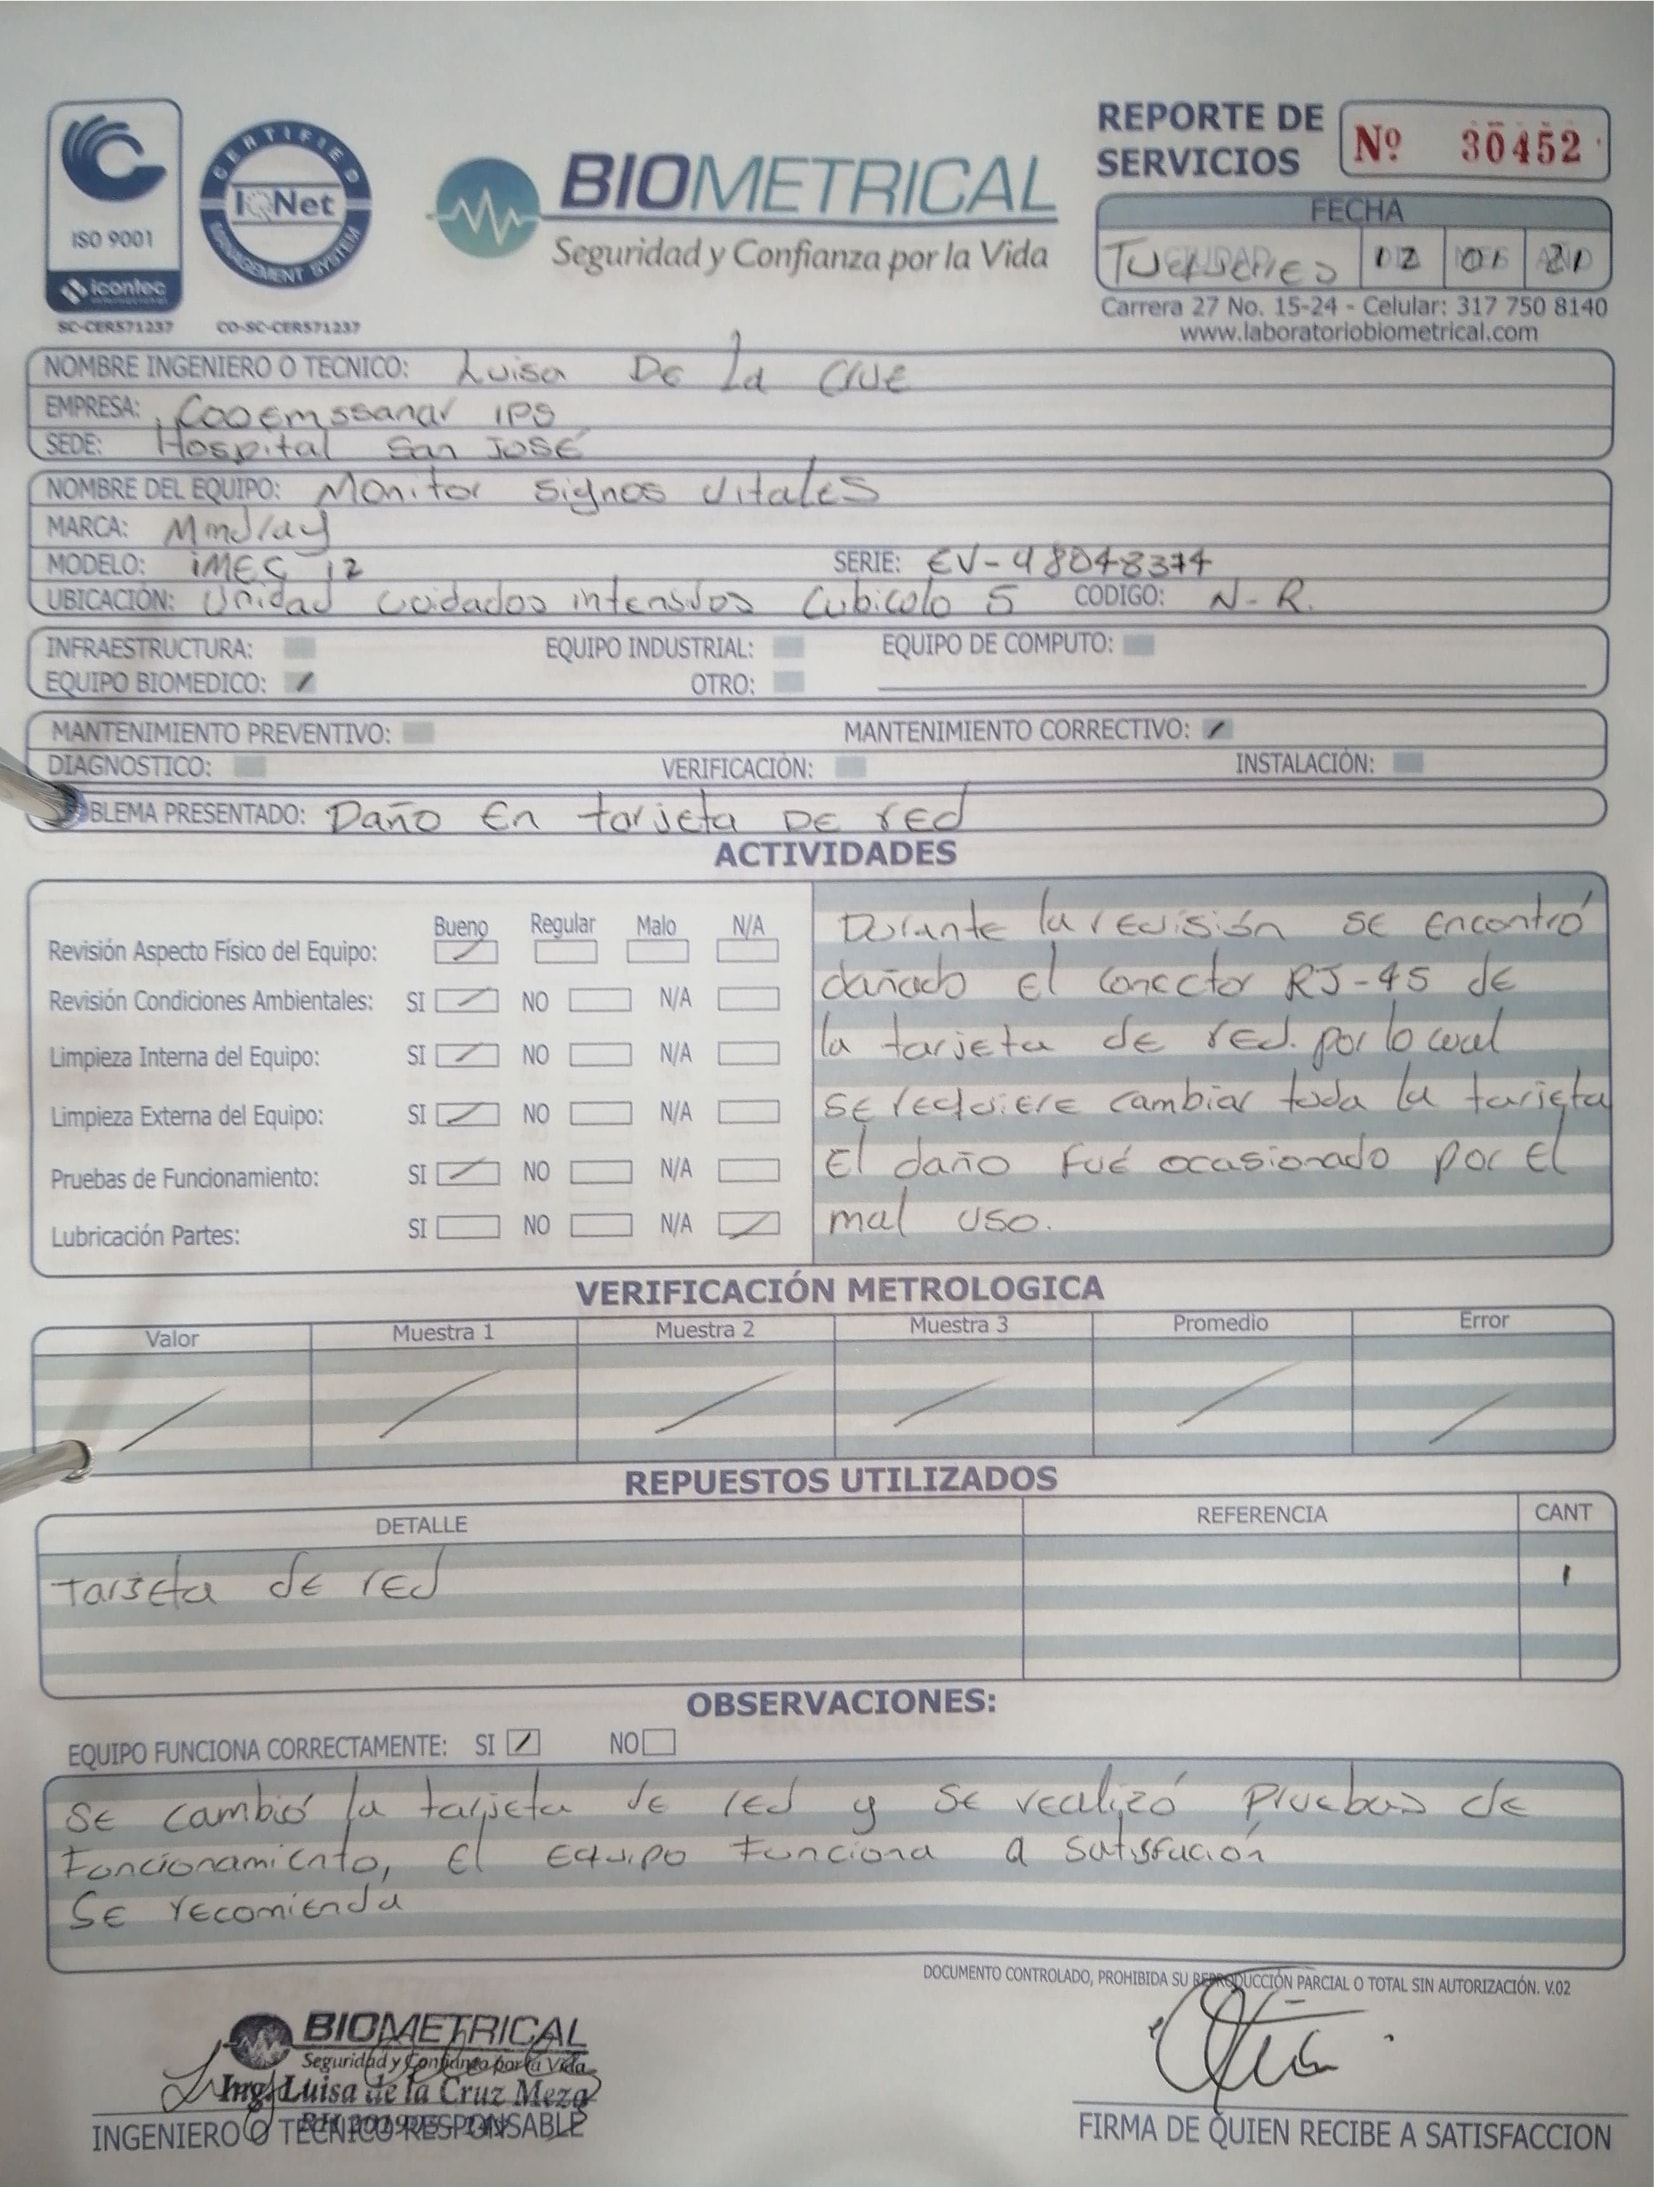 REPORTE DE SERVICIOS Nº 30452
ISO 9001
icontec
SC-CER571237
CERTIFIED IQNet MANAGEMENT SYSTEM
CO-SC-CER571237
BIOMETRICAL
Seguridad y Confianza por la Vida
FECHA
Tuquerres 02 21
Carrera 27 No. 15-24 - Celular: 317 750 8140
www.laboratoriobiometrical.com
NOMBRE INGENIERO O TECNICO: Luisa De La Cruz
EMPRESA: Cooemssanar IPS
SEDE: Hospital San José
NOMBRE DEL EQUIPO: Monitor signos vitales
MARCA: Mindray
MODELO: iMEC 12 SERIE: EV-48048374
UBICACIÓN: Unidad cuidados intensivos Cubiculo 5 CODIGO: N-R.
INFRAESTRUCTURA: EQUIPO INDUSTRIAL: EQUIPO DE COMPUTO:
EQUIPO BIOMEDICO: / OTRO:
MANTENIMIENTO PREVENTIVO: MANTENIMIENTO CORRECTIVO: /
DIAGNOSTICO: VERIFICACIÓN: INSTALACIÓN:
BLEMA PRESENTADO: Daño En tarjeta DE red
ACTIVIDADES
Bueno Regular Malo N/A
Revisión Aspecto Físico del Equipo:
Revisión Condiciones Ambientales: SI NO N/A
Limpieza Interna del Equipo: SI NO N/A
Limpieza Externa del Equipo: SI NO N/A
Pruebas de Funcionamiento: SI NO N/A
Lubricación Partes: SI NO N/A
Durante la revisión se encontró
dañado el conector RJ-45 de
la tarjeta de red. por lo cual
se requiere cambiar toda la tarjeta
El daño fué ocasionado por el
mal uso.
VERIFICACIÓN METROLOGICA
Valor Muestra 1 Muestra 2 Muestra 3 Promedio Error
REPUESTOS UTILIZADOS
DETALLE REFERENCIA CANT
Tarjeta de red 1
OBSERVACIONES:
EQUIPO FUNCIONA CORRECTAMENTE: SI NO
Se cambió la tarjeta de red y se realizó pruebas de
Funcionamiento, el equipo funciona a satisfacción
Se recomienda
DOCUMENTO CONTROLADO, PROHIBIDA SU REPRODUCCIÓN PARCIAL O TOTAL SIN AUTORIZACIÓN. V.02
BIOMETRICAL
Seguridad y Confianza por la Vida
Ing. Luisa de la Cruz Meza
INGENIERO O TECNICO RESPONSABLE
FIRMA DE QUIEN RECIBE A SATISFACCION